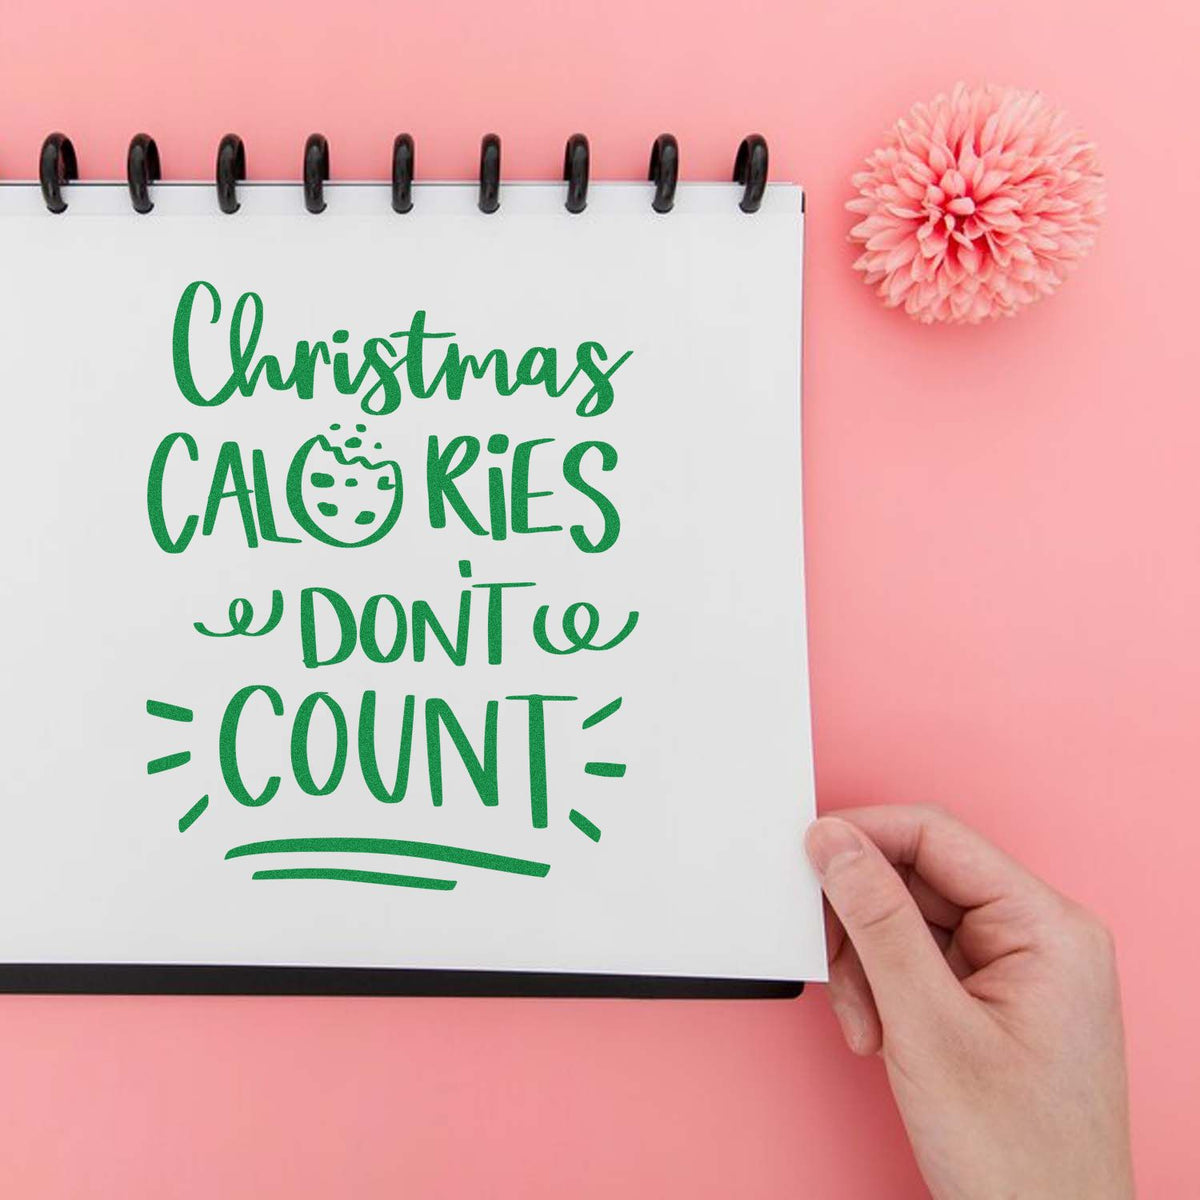 Christmas
CALORiES
DON'T
COUNT